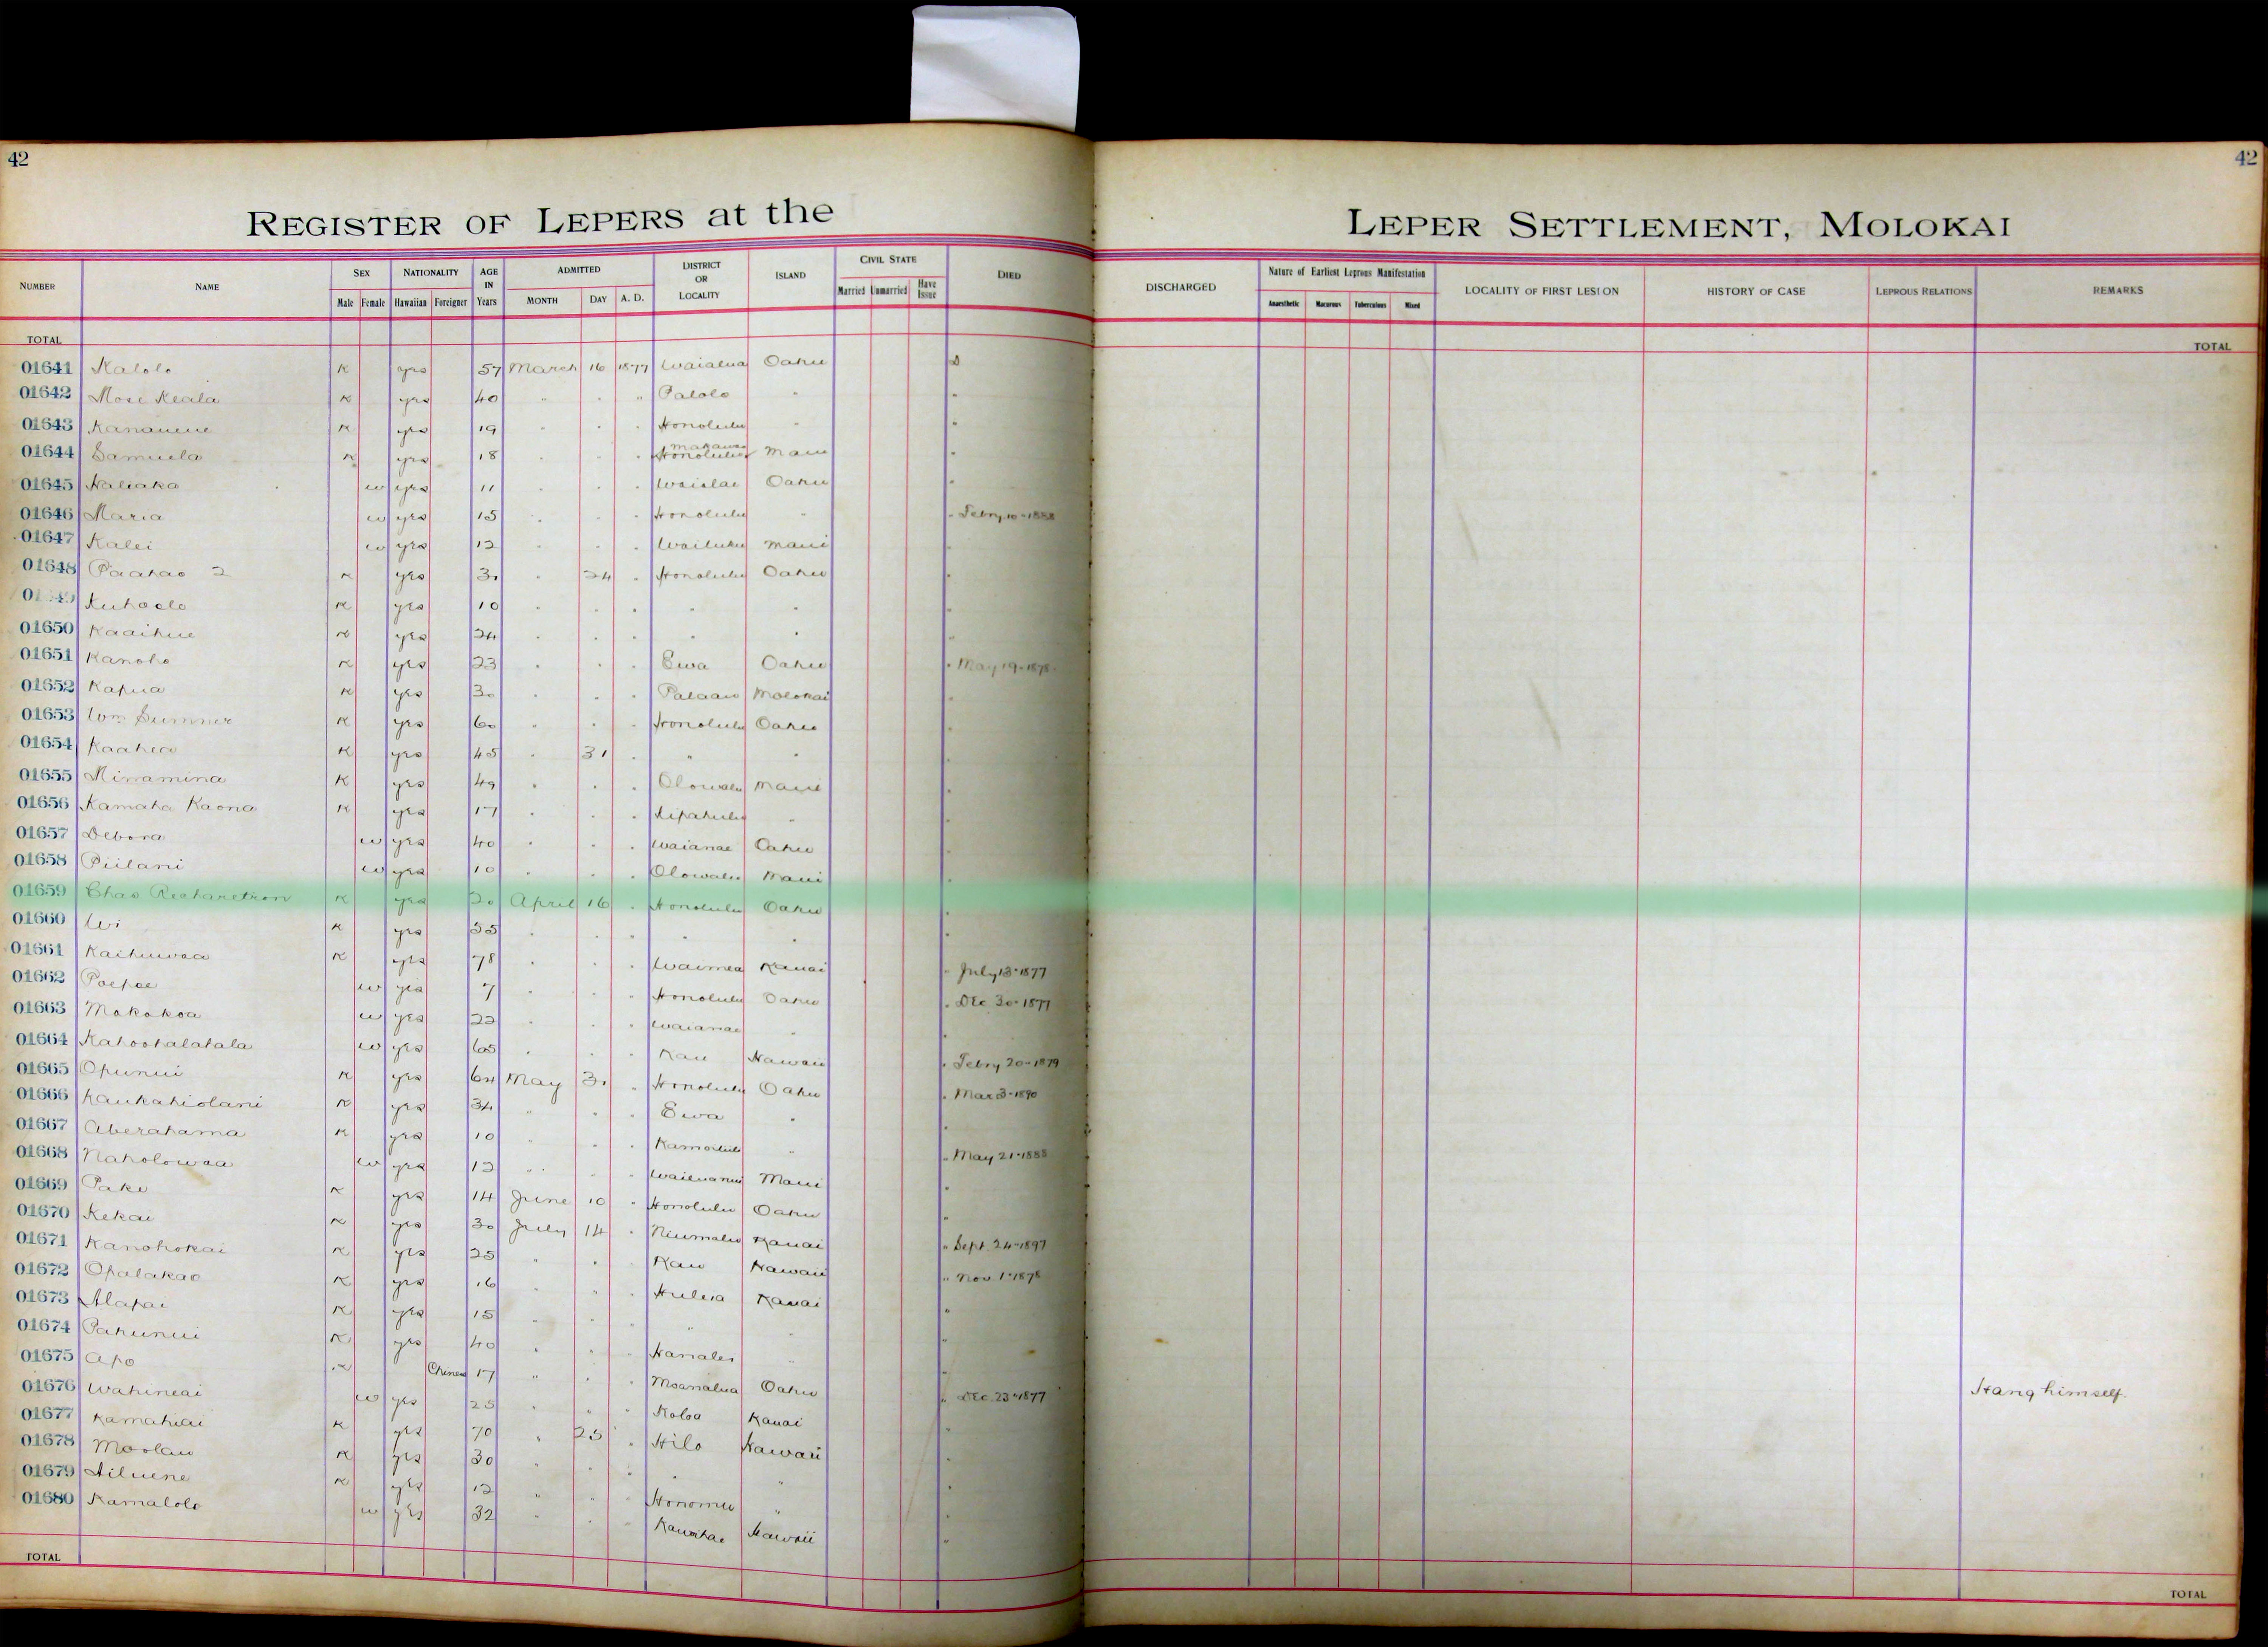 42
42
REGISTER OF LEPERS at the
LEPER SETTLEMENT, MOLOKAI
NUMBER NAME SEX Male Female NATIONALITY Hawaiian Foreigner AGE IN Years ADMITTED MONTH DAY A. D. DISTRICT OR LOCALITY ISLAND CIVIL STATE Married Unmarried Have Issue DIED
DISCHARGED Nature of Earliest Leprous Manifestation Anaesthetic Macurous Tuberculous Mixed LOCALITY OF FIRST LESION HISTORY OF CASE LEPROUS RELATIONS REMARKS
TOTAL
TOTAL
01641 Kalolo K yes 57 March 16 1877 Waialua Oahu D
01642 Mose Keala K yes 40 " " " Palolo " "
01643 Kananene K yes 19 " " " Honolulu " "
01644 Samuela K yes 18 " " " Honolulu Makawao Maui "
01645 Haliaka w yes 11 " " " Waialae Oahu "
01646 Maria w yes 15 " " " Honolulu " " Febry 10-1888
01647 Kalei w yes 12 " " " Wailuku Maui "
01648 Paahao 2 K yes 30 " 24 " Honolulu Oahu "
Kuhaelo K yes 10 " " " " " "
01650 Kaaihue K yes 24 " " " " " "
01651 Kanoho K yes 23 " " " Ewa Oahu " May 19-1878
01652 Kapua K yes 30 " " " Palaau Molokai "
01653 Wm Sumner K yes 60 " " " Honolulu Oahu "
01654 Kaahea K yes 45 " 31 " " " "
01655 Minamina K yes 49 " " " Olowalu Maui "
01656 Kamaha Kaona K yes 17 " " " Kipahulu " "
01657 Debora w yes 40 " " " Waianae Oahu "
01658 Piilani w yes 10 " " " Olowalu Maui "
01659 Chas Richardson K yes 20 April 16 " Honolulu Oahu "
01660 Wi K yes 35 " " " " " "
01661 Kaihuwaa K yes 78 " " " Waimea Kauai " July 13-1877
01662 Poepoe w yes 7 " " " Honolulu Oahu " Dec 30-1877
01663 Mokokoa w yes 22 " " " Waianae " "
01664 Kahoohalahala w yes 65 " " " Kau Hawaii " Febry 20-1879
01665 Opunui K yes 64 May 31 " Honolulu Oahu " Mar 3-1890
01666 Kaukahiolani K yes 34 " " " Ewa " "
01667 Aberahama K yes 10 " " " Kamoiliili " " May 21-1888
01668 Naholowaa w yes 12 " " " Wailuanui Maui "
01669 Pake K yes 14 June 10 " Honolulu Oahu "
01670 Kekai K yes 30 July 14 " Niumalu Kauai " Sept. 24-1897
01671 Kanohokai K yes 25 " " " Kau Hawaii " Nov 1-1878
01672 Opalakao K yes 16 " " " Huleia Kauai "
01673 Alapai K yes 15 " " " " " "
01674 Pahunui K yes 40 " " " Hanalei " "
01675 Apo K Chinese 17 " " " Moanalua Oahu " Dec. 23-1877 Hang himself.
01676 Wahineai w yes 25 " " " Koloa Kauai "
01677 Kamahiai K yes 70 " 25 " Hilo Hawaii "
01678 Moolau K yes 30 " " " " " "
01679 Ailuene K yes 12 " " " Honomu " "
01680 Kamalolo w yes 32 " " " Kawaihae Hawaii "
TOTAL
TOTAL